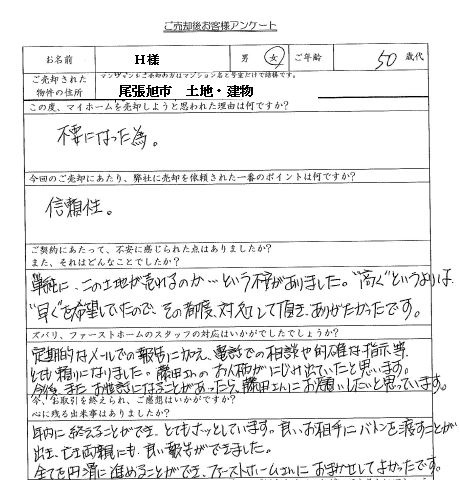 ご売却後お客様アンケート
お名前 H様 男 女 ご年齢 50歳代
ご売却された マンションをご売却の方はマンション名と号室だけで結構です。
物件の住所 尾張旭市 土地・建物
この度、マイホームを売却しようと思われた理由は何ですか?
不要になった為。
今回のご売却にあたり、弊社に売却を依頼された一番のポイントは何ですか?
信頼性。
ご契約にあたって、不安に感じられた点はありましたか?
また、それはどんなことでしたか?
単純に、この土地が売れるのか…という不安がありました。"高く"というよりは
"早く"を希望していたので、その都度、対応して頂き、ありがたかったです。
ズバリ、ファーストホームのスタッフの対応はいかがでしたでしょうか?
定期的なメールでの報告に加え、電話での相談や的確な指示等
とても頼りになりました。藤田さんのお人柄がにじみ出ていたと思います。
今後、またお世話になることがあったら、藤田さんにお願いしたいと思っています。
今、お取引を終えられ、ご感想はいかがですか?
心に残る出来事はありましたか?
年内に終えることができ、とてもホッとしています。良いお相手にバトンを渡すことが
出来、亡き両親にも、良い報告ができました。
全てを円滑に進めることができ、ファーストホームさんにおまかせしてよかったです。